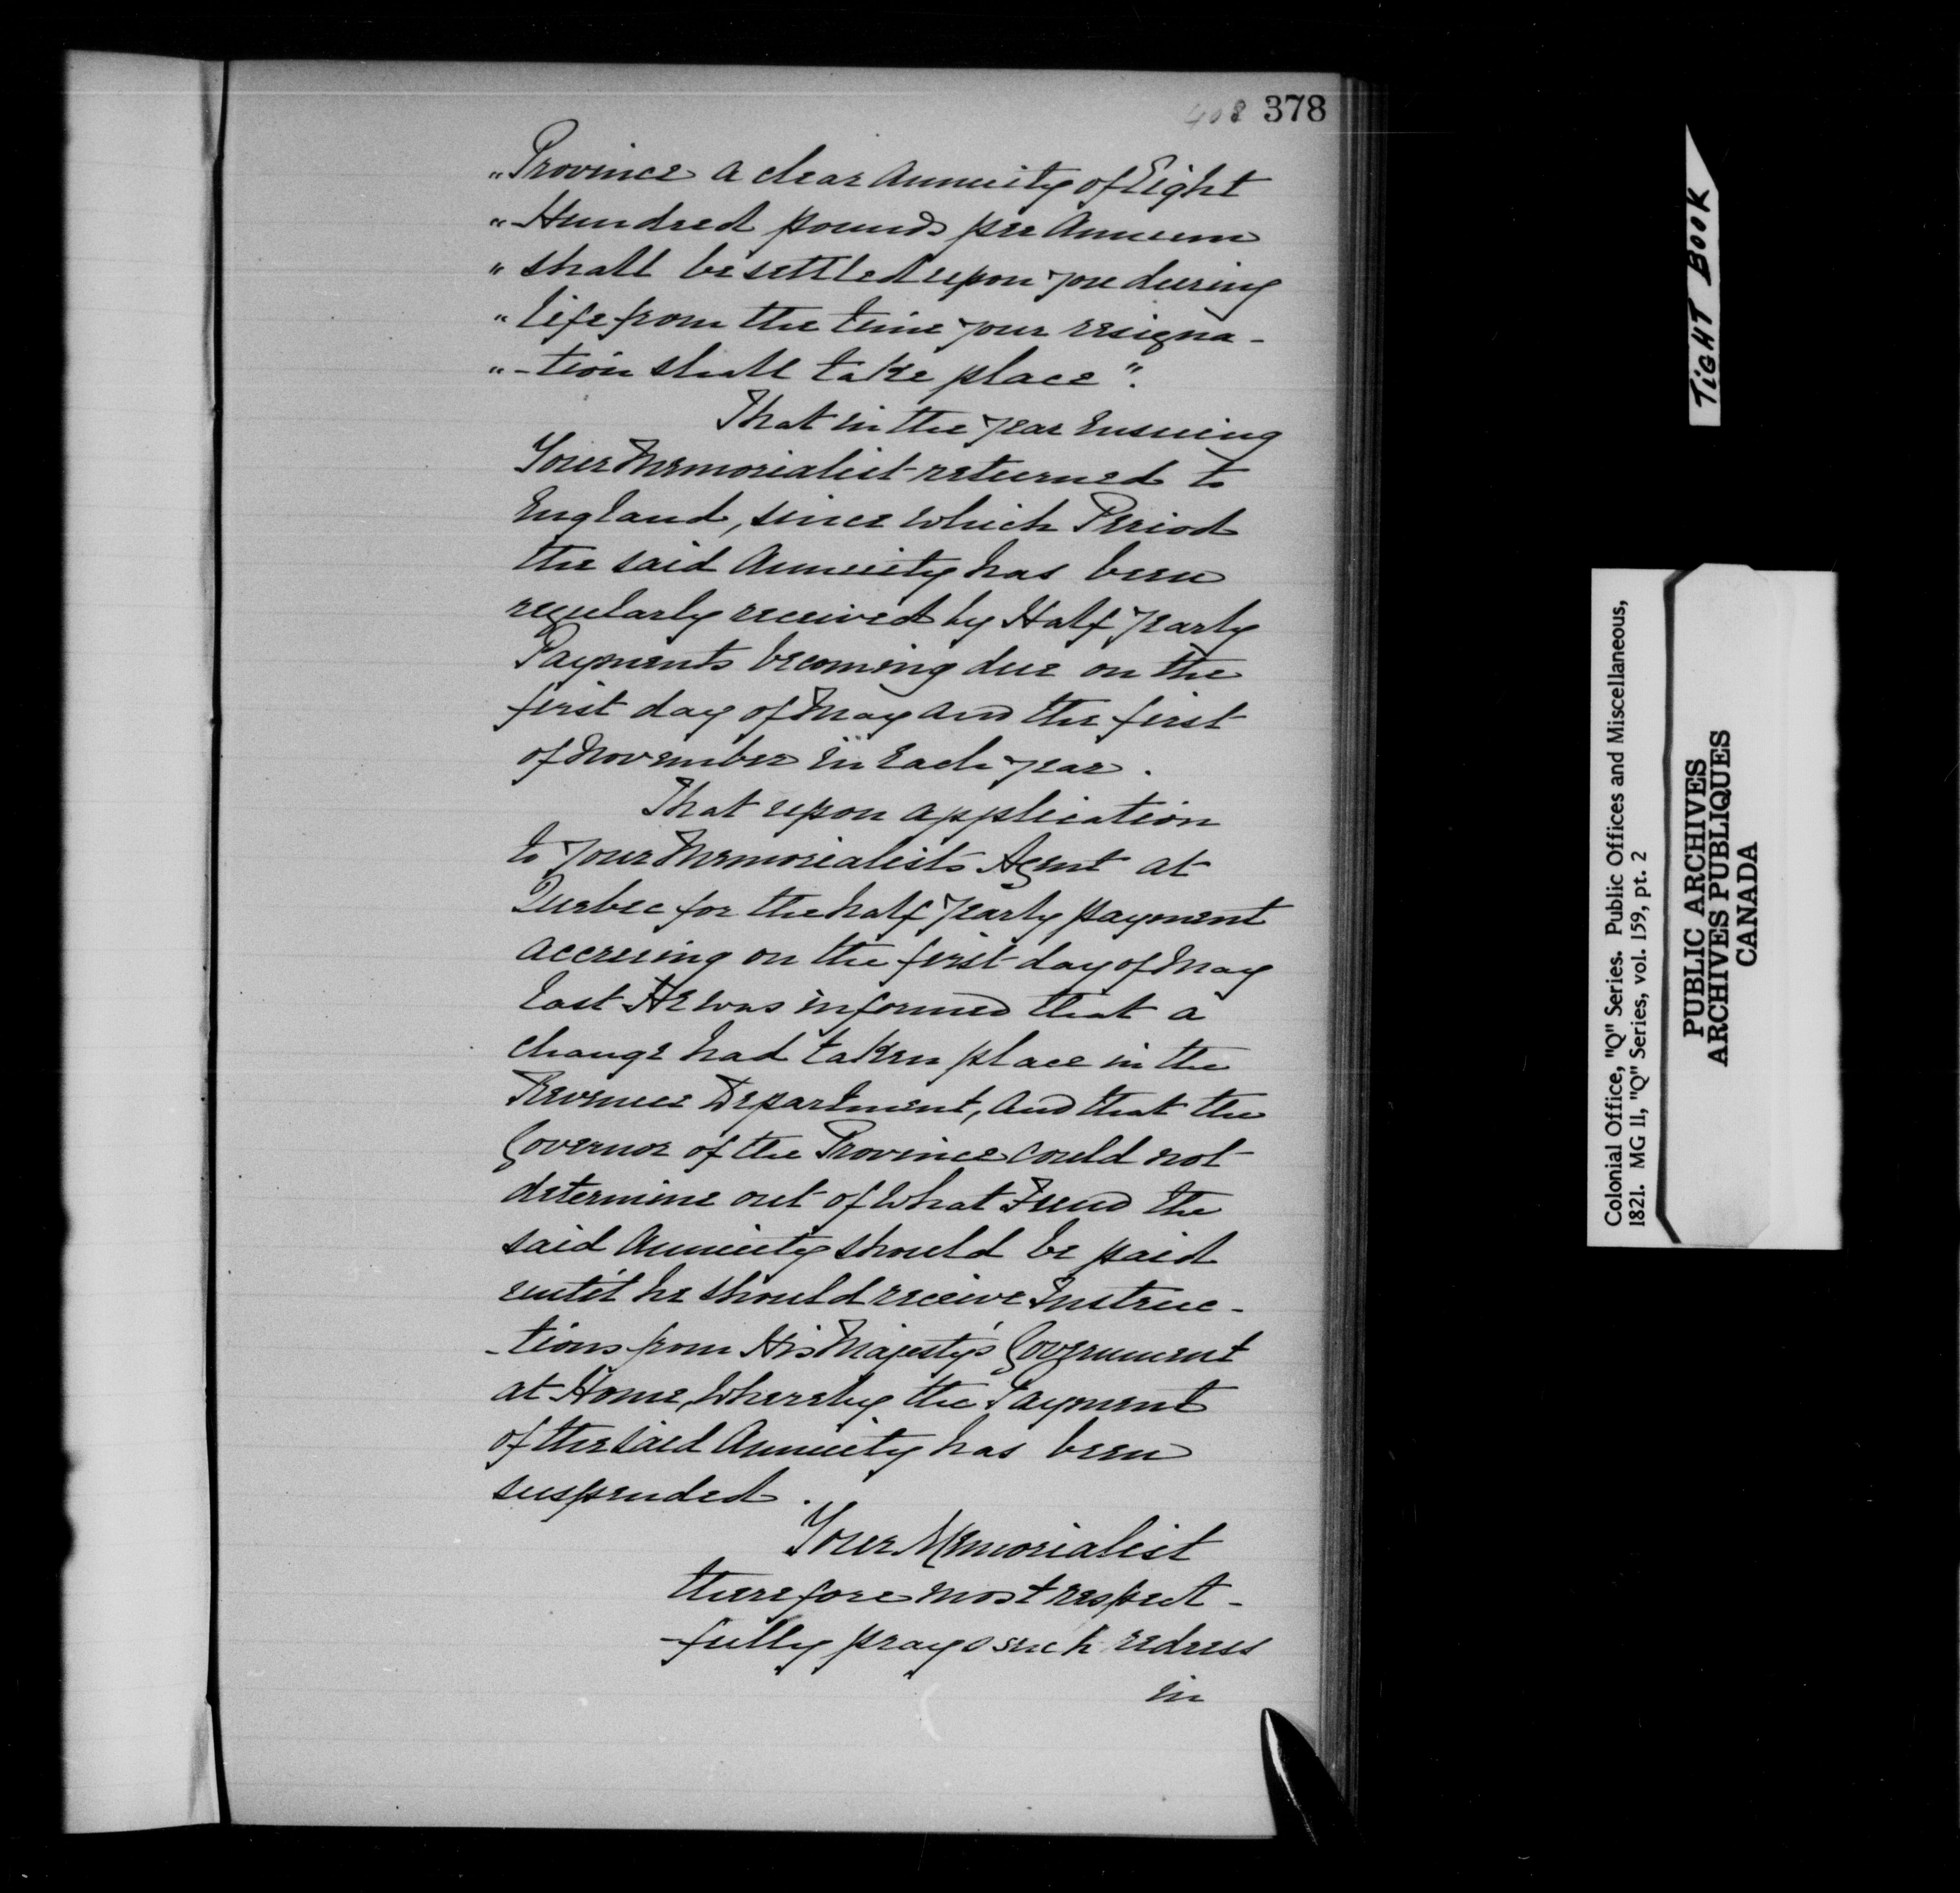 408 378
"Province a clear Annuity of Eight
"Hundred pounds per Annum
"shall be settled upon you during
"life from the time your resigna-
"-tion shall take place".
That in the year ensuing
Your Memorialist returned to
England, since which Period
the said Annuity has been
regularly received by Half yearly
Payments becoming due on the
first day of May and the first
of November in Each year.
That upon application
to your Memorialist's Agent at
Quebec for the half yearly payment
accrueing on the first day of May
last He was informed that a
change had taken place in the
Revenue Department, and that the
Governor of the Province could not
determine out of what Fund the
said Annuity should be paid
until he should receive Instruc-
-tions from His Majesty's Government
at Home, whereby the Payment
of the said Annuity has been
suspended.
Your Memorialist
therefore most respect-
-fully prays such redress
in
TIGHT BOOK
Colonial Office, "Q" Series. Public Offices and Miscellaneous,
1821. MG 11, "Q" Series, vol. 159, pt. 2
PUBLIC ARCHIVES
ARCHIVES PUBLIQUES
CANADA